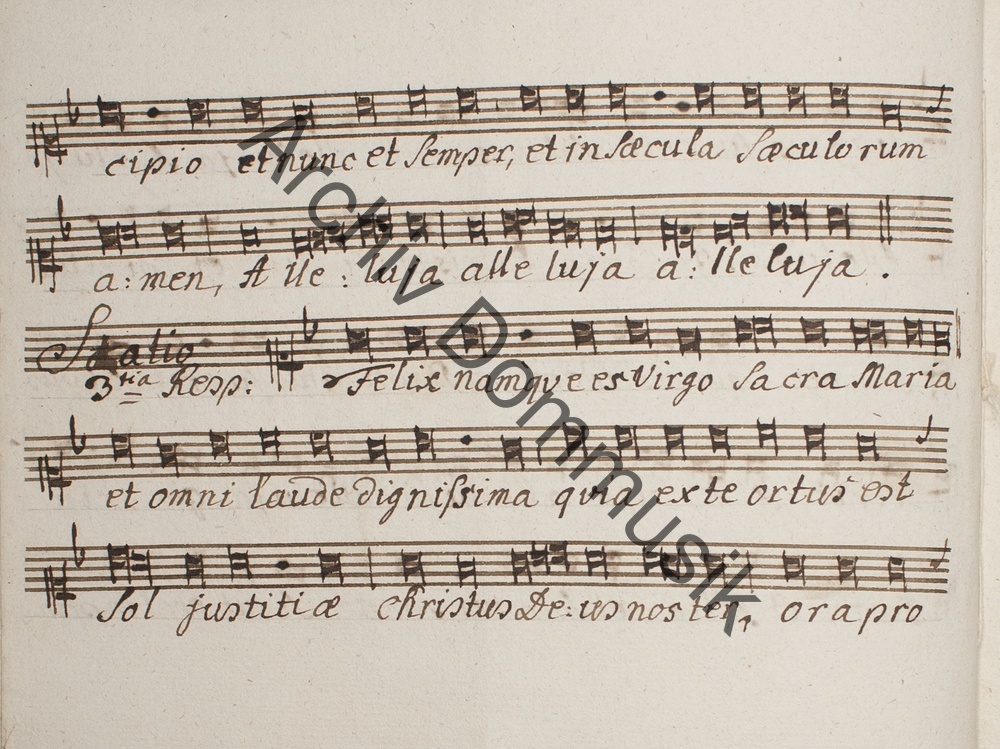 cipio et nunc et semper, et in sæcula sæculorum
a: men, Alle: luja alleluja a: lleluja.
Statio
3tia Resp: Felix namque es Virgo sacra Maria
et omni laude dignissima quia ex te ortus est
Sol justitiæ Christus De: us noster, ora pro
Archiv Dommusik